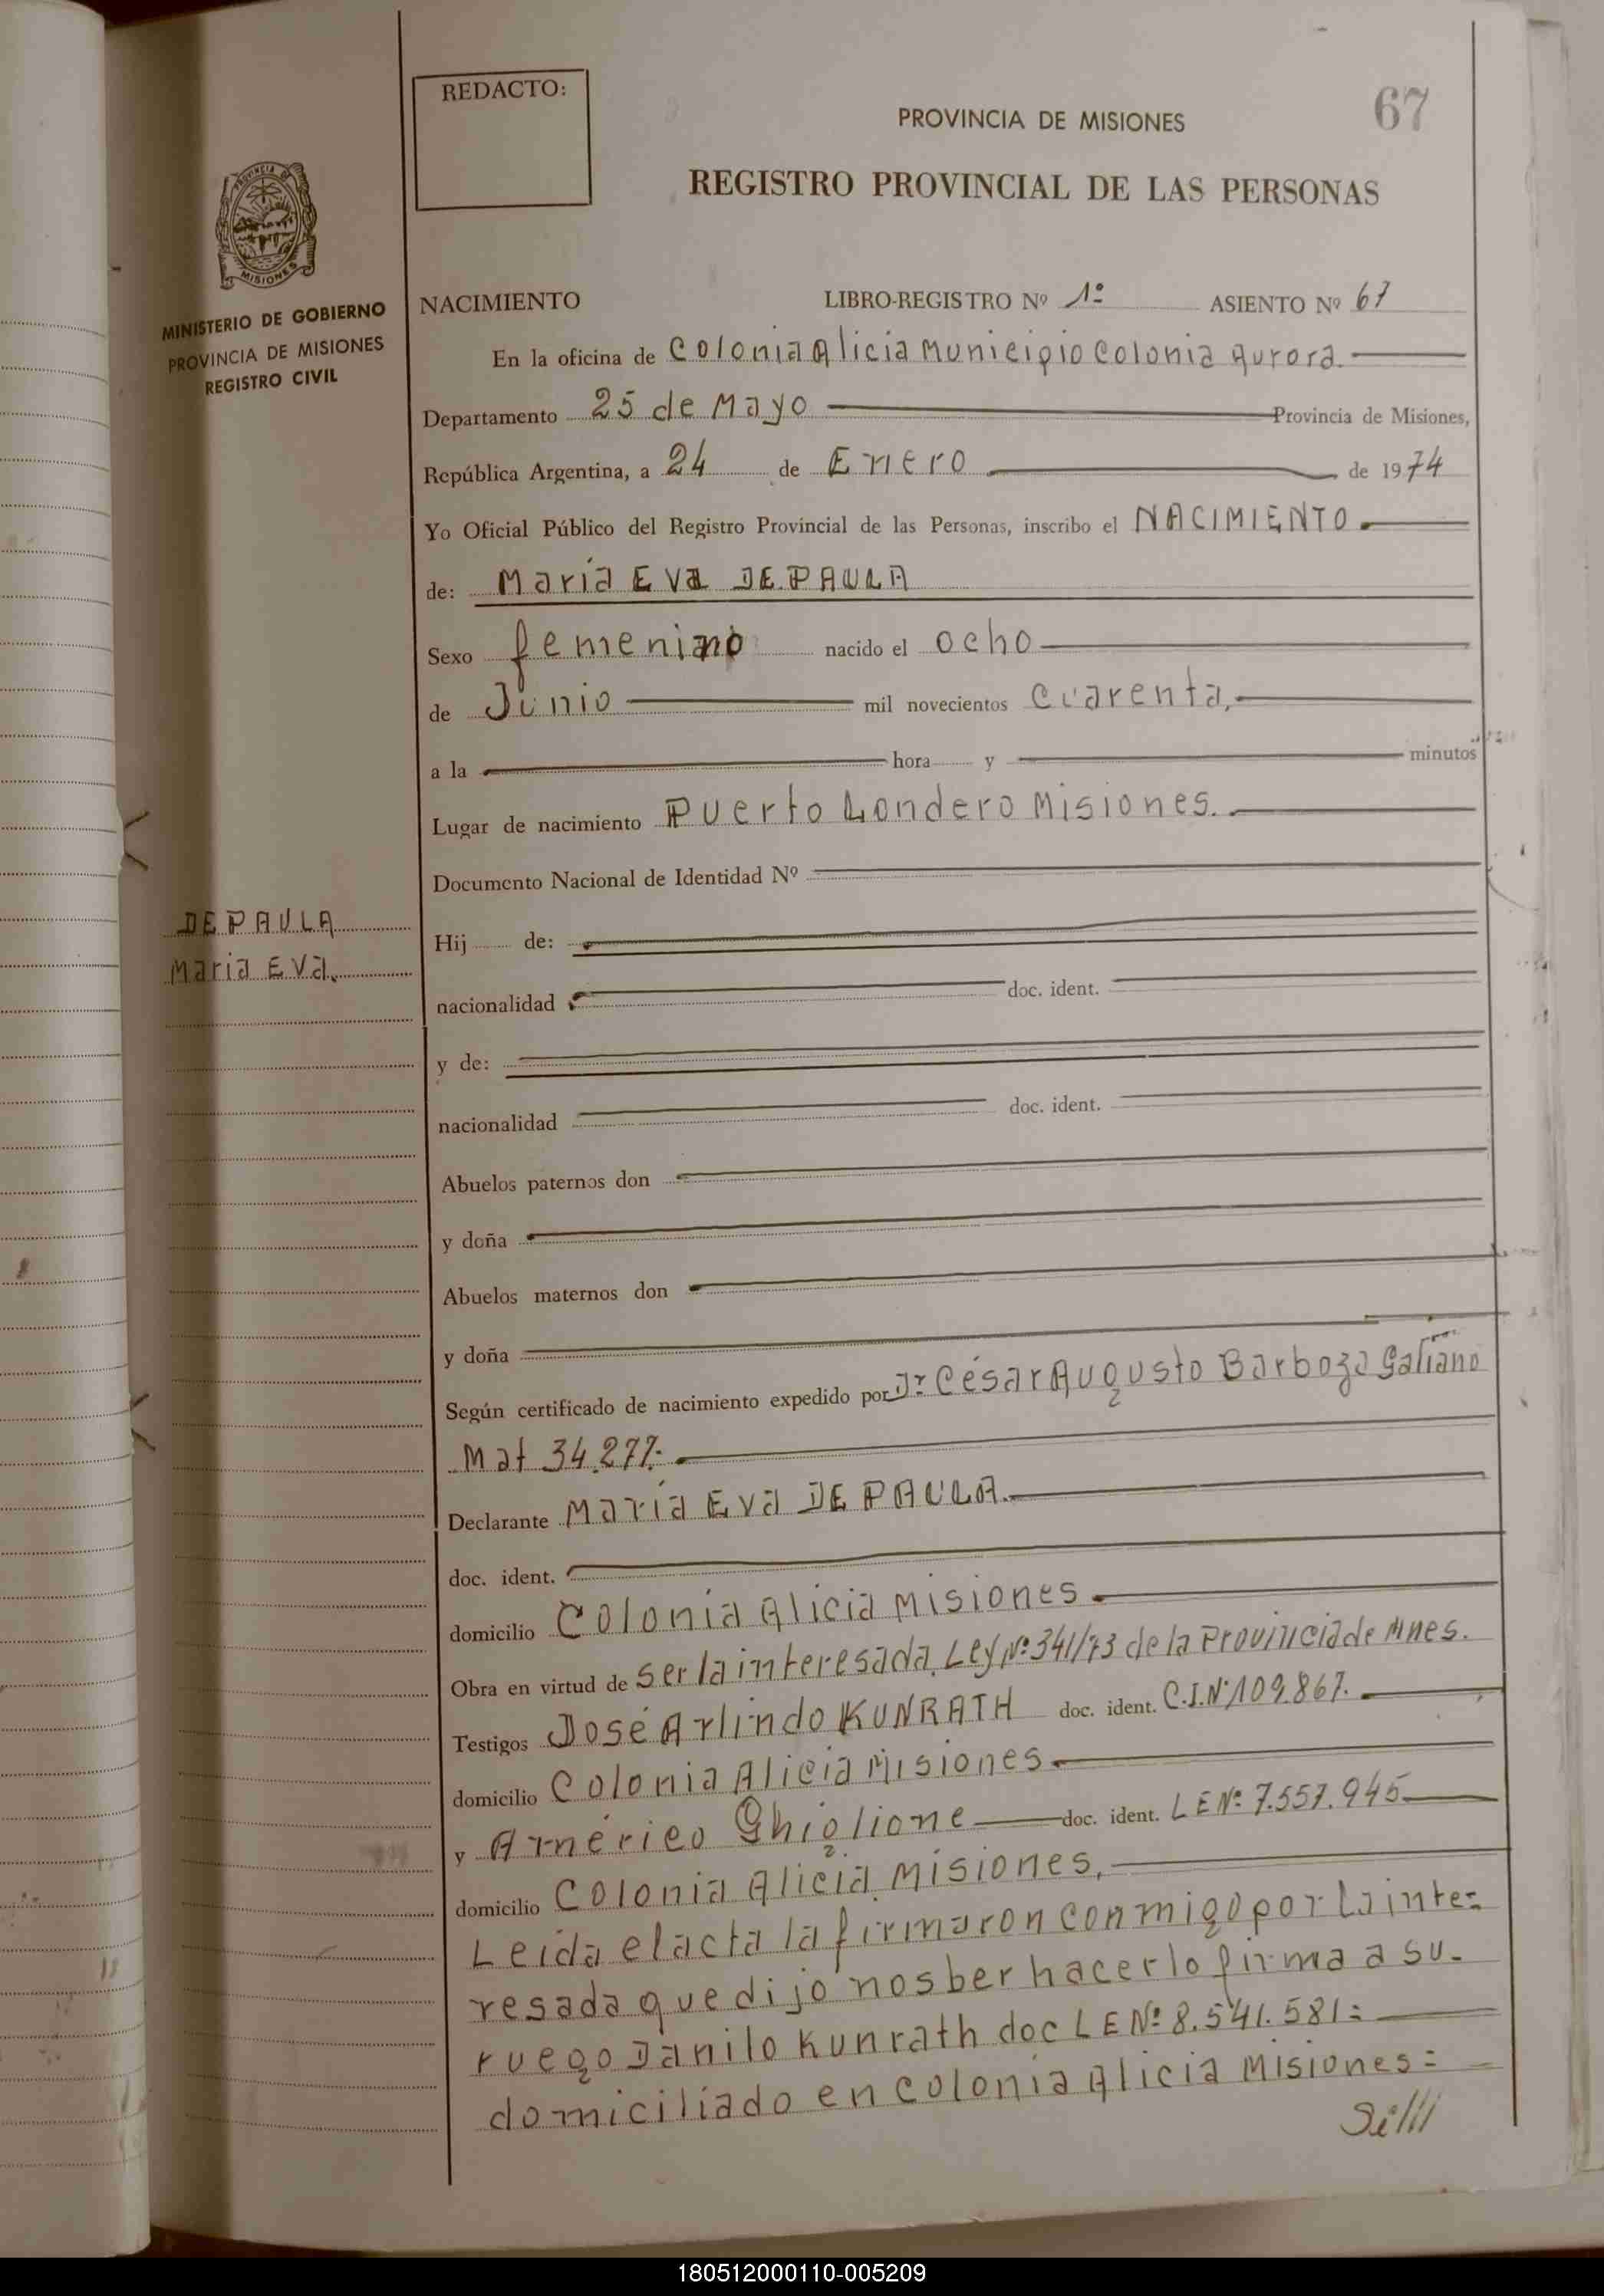 REDACTO:
PROVINCIA DE MISIONES
67
REGISTRO PROVINCIAL DE LAS PERSONAS
PROVINCIA DE
MISIONES
MINISTERIO DE GOBIERNO
PROVINCIA DE MISIONES
REGISTRO CIVIL
NACIMIENTO LIBRO-REGISTRO Nº 1º ASIENTO Nº 67
En la oficina de Colonia Alicia Municipio Colonia Aurora.
Departamento 25 de Mayo Provincia de Misiones,
República Argentina, a 24 de Enero de 1974
Yo Oficial Público del Registro Provincial de las Personas, inscribo el NACIMIENTO.
de: María Eva DE PAULA
Sexo femenino nacido el ocho
de Junio mil novecientos cuarenta,
a la hora y minutos
Lugar de nacimiento Puerto Londero Misiones.
Documento Nacional de Identidad Nº
DE PAULA
María Eva.
Hij de:
nacionalidad doc. ident.
y de:
nacionalidad doc. ident.
Abuelos paternos don
y doña
Abuelos maternos don
y doña
Según certificado de nacimiento expedido por Dr César Augusto Barboza Galiano
Mat 34.277.
Declarante María Eva DE PAULA.
doc. ident.
domicilio Colonia Alicia Misiones
Obra en virtud de ser la interesada. Ley Nº 341/73 de la Provincia de Mnes.
Testigos José Arlindo KUNRATH doc. ident. C.I.Nº 109.867.
domicilio Colonia Alicia Misiones
y Américo Ghiglione doc. ident. LE Nº 7.557.945
domicilio Colonia Alicia Misiones,
Leída el acta la firmaron conmigo por la inte=
resada que dijo no sber hacerlo firma a su-
ruego Danilo Kunrath doc LE Nº 8.541.581=
domiciliado en Colonia Alicia Misiones=
180512000110-005209